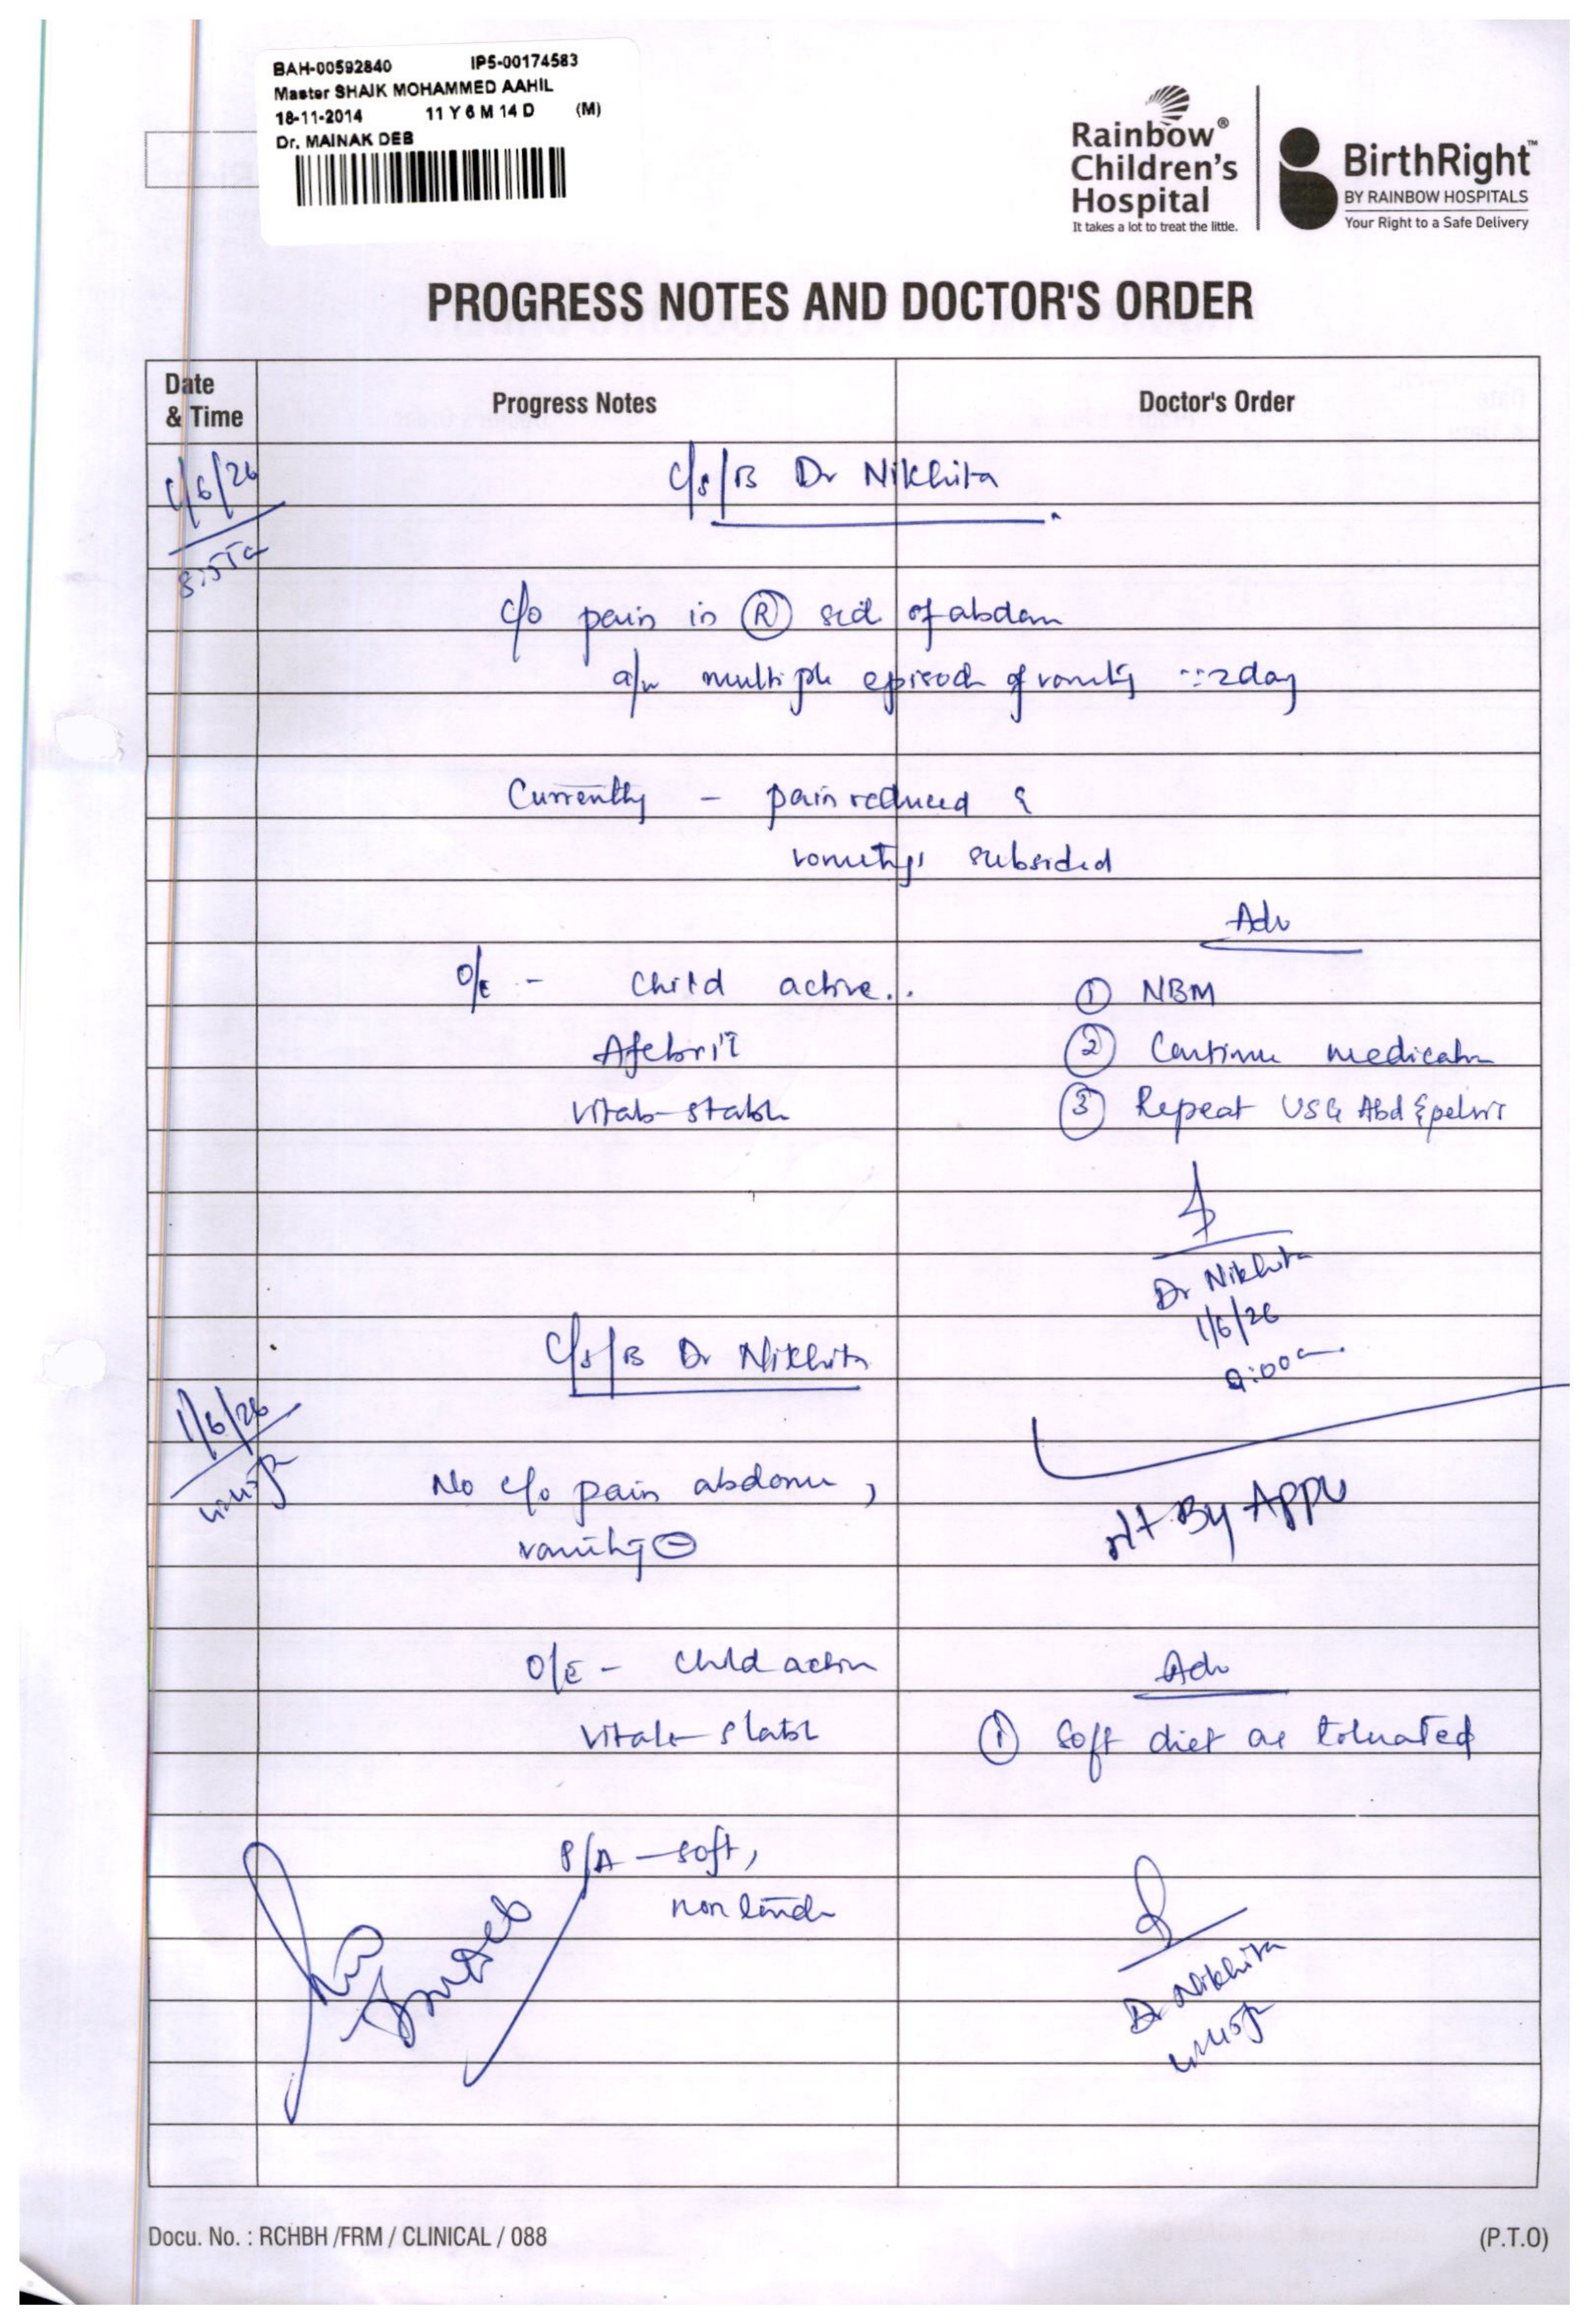 BAH-00592840 IP5-00174583
Master SHAIK MOHAMMED AAHIL
18-11-2014 11 Y 6 M 14 D (M)
Dr. MAINAK DEB
Rainbow®
Children's
Hospital
It takes a lot to treat the little.
BirthRight™
BY RAINBOW HOSPITALS
Your Right to a Safe Delivery
PROGRESS NOTES AND DOCTOR'S ORDER
Date
& Time
Progress Notes
Doctor's Order
1/6/26
C/s/B Dr Nikhita
c/o pain in Ⓡ sid of abdom
a/w multiple episode of vomitg 2day
Currently - pain reduced &
vomitgs subsided
Adv
O/E - Child active..
① NBM
Afebril
② Continue medicatn
Vitals stable
③ Repeat USG Abd & pelvis
Dr Nikhita
1/6/26
9:00a
C/s/B Dr Nikhita
1/6/26
No c/o pain abdomen,
vomitig ⊖
By Appu
O/E - Child active
Adv
Vitals stable
① Soft diet as tolerated
P/A - soft,
non tender
Dr Nikhita
Docu. No. : RCHBH /FRM / CLINICAL / 088
(P.T.O)